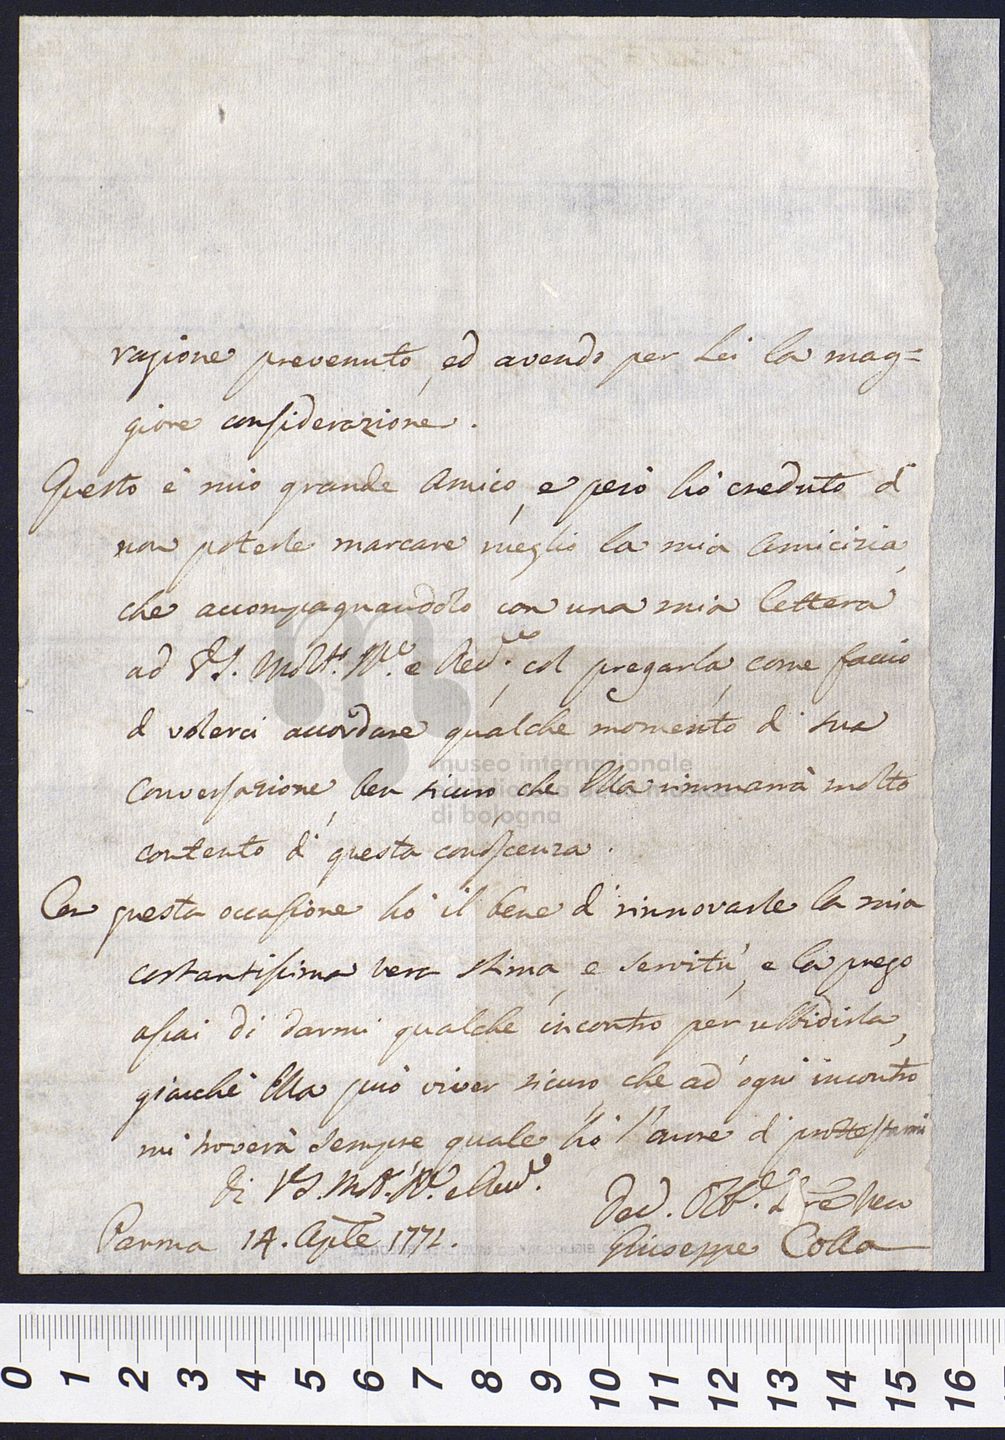 ragione prevenuto, ed avendo per Lei la mag=
giore considerazione.
Questo è mio grande Amico, e però hò creduto d
non poterle marcare meglio la mia Amicizia,
che accompagnandolo con una mia lettera
ad V.S. Molt. Re. e Rev.do col pregarla, come faccio
d volerci accordare qualche momento di sua
Conversazione, ben sicuro che Ella rimmarrà molto
contento d questa conoscenza.
Con questa occasione hò il bene d rinnovarle la mia
costantissima vera stima, e servitù, e la prego
assai di darmi qualche incontro per ubbidirla,
giacchè Ella può viver sicuro, che ad ogni incontro
mi troverà sempre quale hò l'onore d prottestarmi
Di V.S. M. R. e Rev.do
Dev. Obb. Ser
Parma 14. Aprle 1771.
Giuseppe Colla
museo internazionale
di bologna
0 1 2 3 4 5 6 7 8 9 10 11 12 13 14 15 16